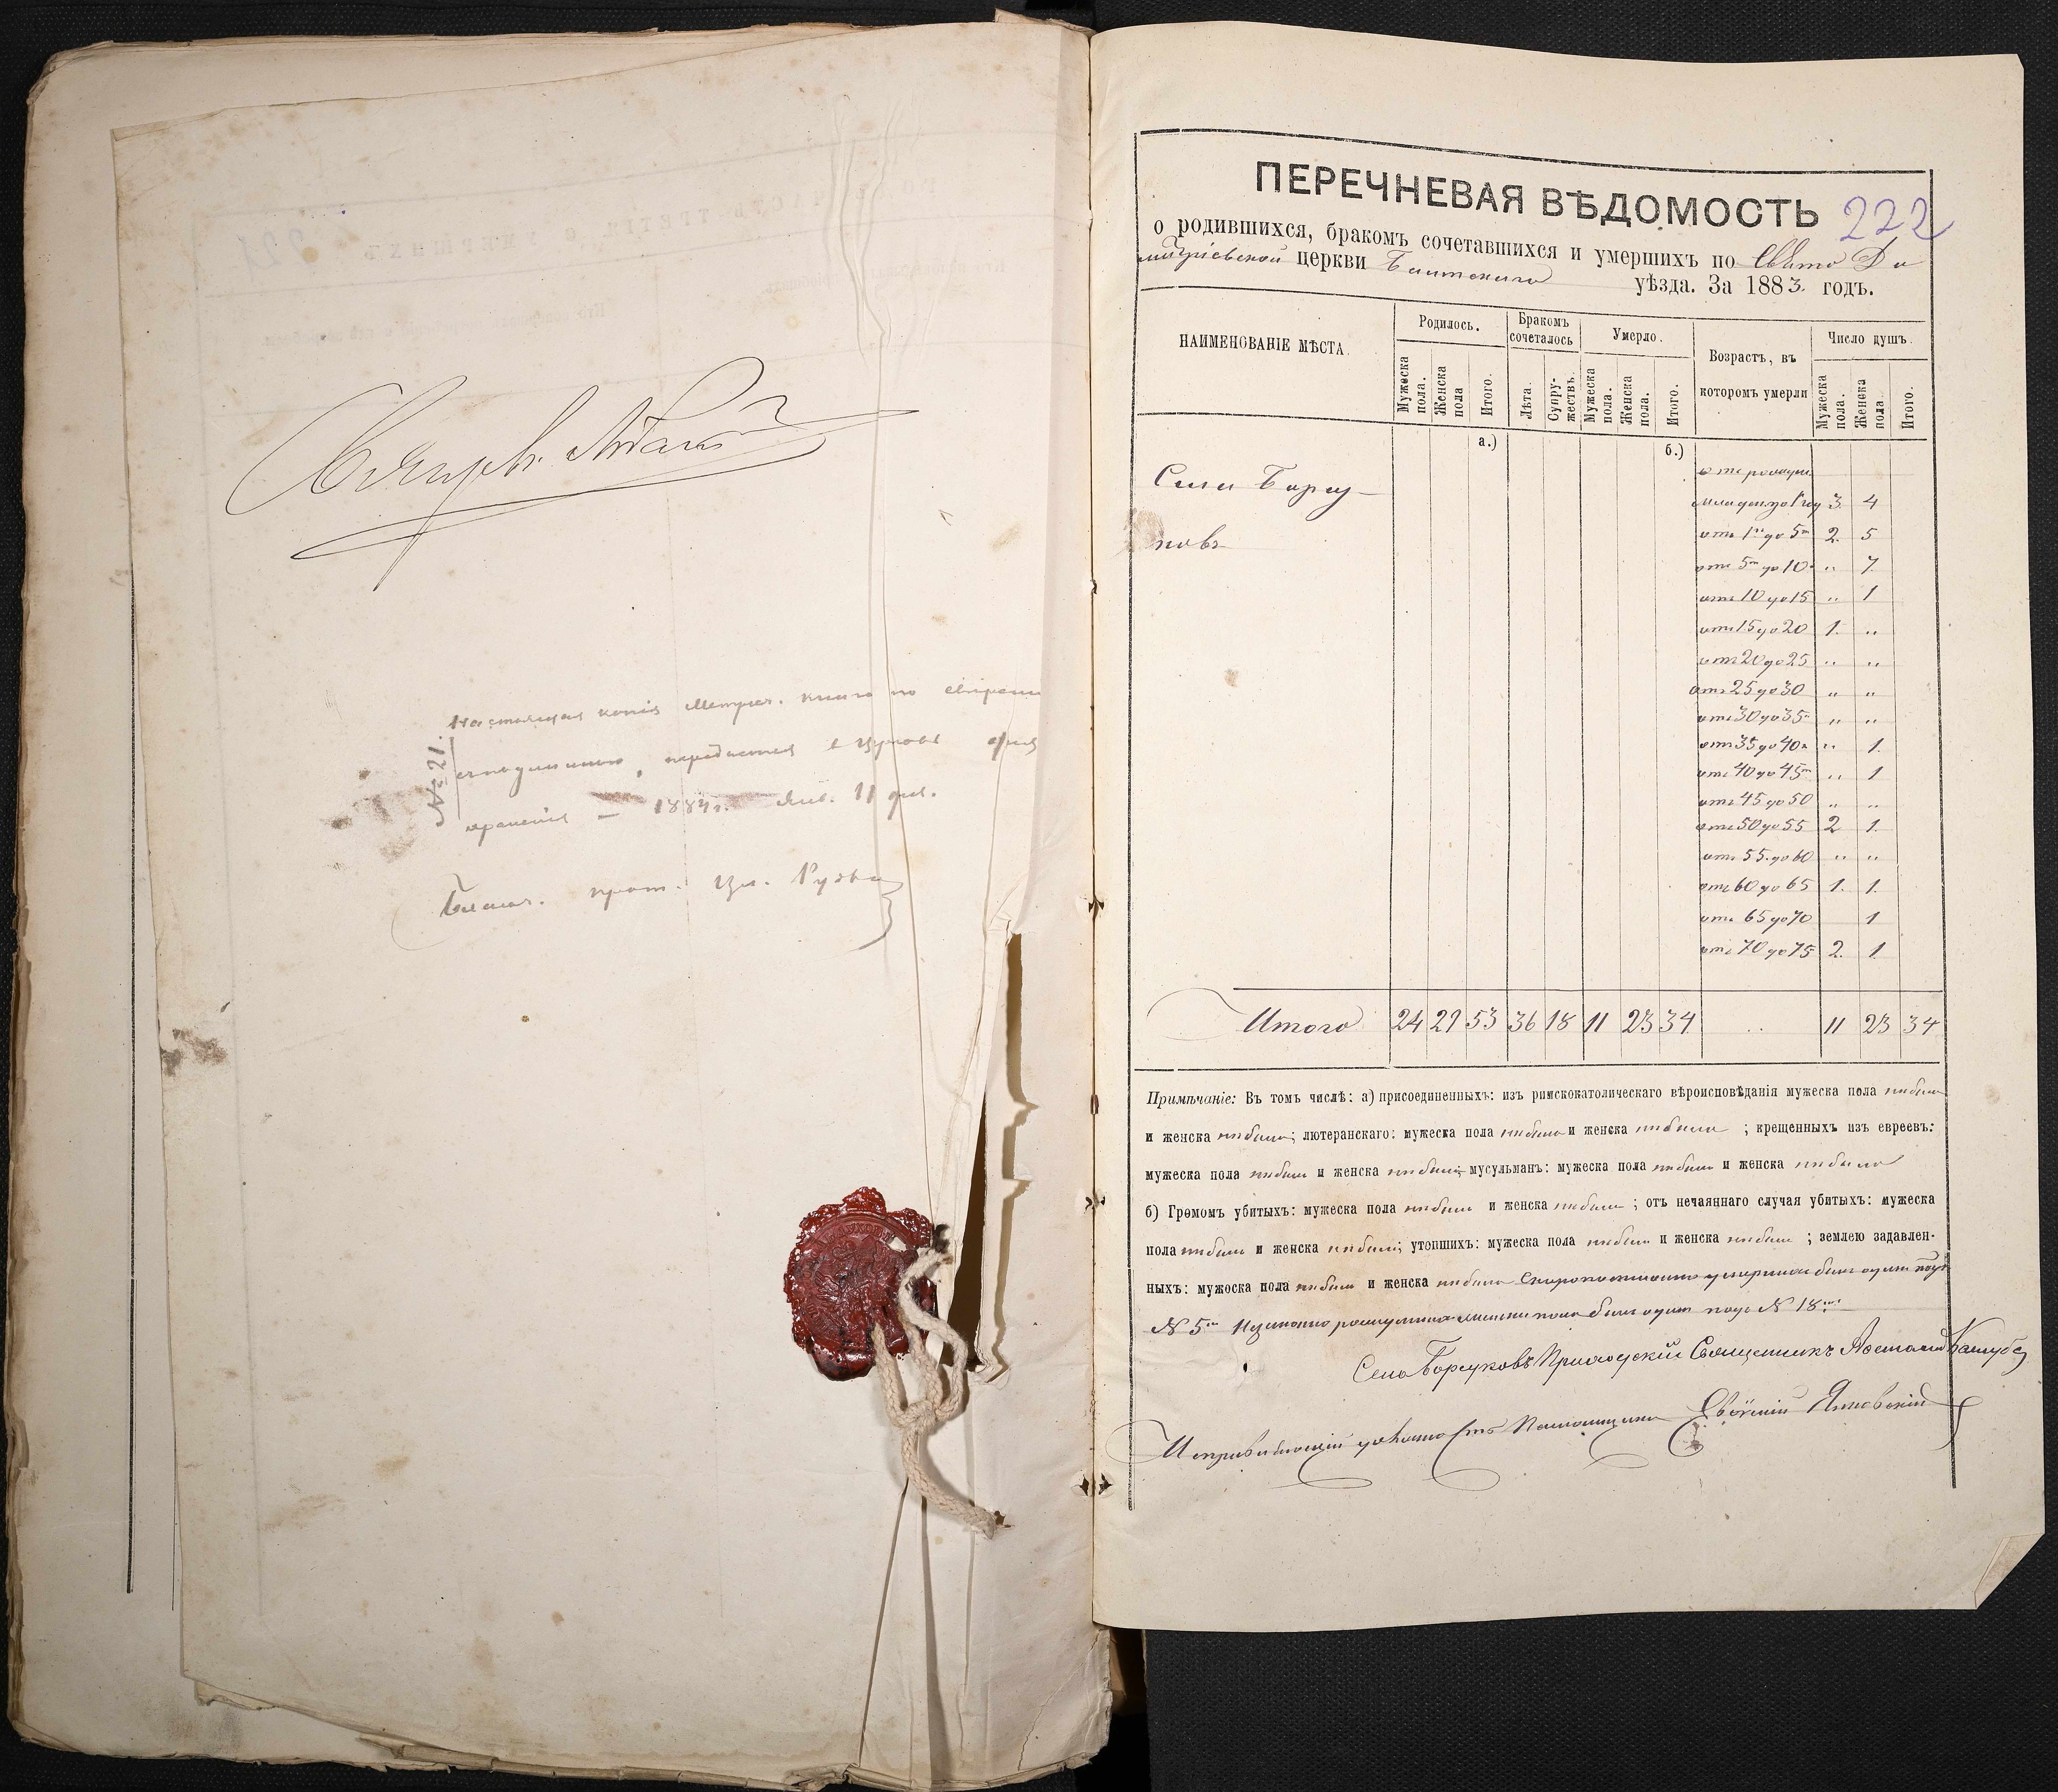 № 21.
Настоящая копія Метрич. книги по
передается в Церковь для
храненія — 1884 г. Янв. 11 дня.
Благоч. прот.
ПЕРЕЧНЕВАЯ ВѢДОМОСТЬ 222
о родившихся, бракомъ сочетавшихся и умершихъ по Свято Ди
митріевской церкви Балтскаго уѣзда. За 1883 годъ.
НАИМЕНОВАНІЕ МѢСТА.
Родилось.
Бракомъ сочеталось
Умерло.
Возрастъ, въ которомъ умерли
Число душъ.
Мужеска пола.
Женска пола
Итого.
Лѣта.
Супружествъ.
Мужеска пола.
Женска пола.
Итого.
Мужеска пола.
Женска пола.
Итого.
а.) б.)
Села Борсу-
ковъ
отъ рожденія
младенцевъ 3. 4
отъ 1го до 5ти 2. 5
отъ 5ти до 10 „ 7.
отъ 10 до 15 „ 1
отъ 15 до 20 1. „
отъ 20 до 25 „ „
отъ 25 до 30 „ „
отъ 30 до 35 „ „
отъ 35 до 40 „ 1.
отъ 40 до 45 „ 1
отъ 45 до 50 „ „
отъ 50 до 55 2 1.
отъ 55 до 60 „ „
отъ 60 до 65 1. 1.
отъ 65 до 70 1
отъ 70 до 75 2. 1.
Итого 24 29 53 36 18 11 23 34 „ 11 23 34
Примѣчаніе: Въ томъ числѣ: а) присоединенныхъ: изъ римскокатолическаго вѣроисповѣданія мужеска пола небыло
и женска небыло; лютеранскаго: мужеска пола небыло и женска небыло; крещенныхъ изъ евреевъ:
мужеска пола небыло и женска небыло; мусульманъ: мужеска пола небыло и женска небыло
б) Громомъ убитыхъ: мужеска пола небыло и женска небыло; отъ нечаяннаго случая убитыхъ: мужеска
пола небыло и женска небыло; утопшихъ: мужеска пола небыло и женска небыло; землею задавлен-
ныхъ: мужоска пола небыло и женска небыло Скоропостижно умершихъ былъ одинъ подъ
№ 5м женска пола былъ одинъ подъ № 18м
Села Борсуковъ Приходскій Священникъ
Исправляющій должность Псаломщика Евѳимій Яновскій